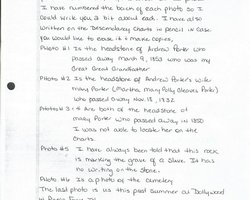 I have numbered the back of each photo so I
could write you a bit about each. I have also
written on the Descendancy Charts in pencil in case
you would like to make copies.
Photo #1 Is the headstone of Andrew Porter who
passed away March 9, 1853 who was my
Great Great Grandfather
Photo #2 Is the headstone of Andrew Porter's wife
Mary Porter (Martha Mary Polly Porter)
who passed away Nov 18, 1832
Photos #3 + 4 Are both of the headstone of
Mary Porter who passed away in 1850
I was not able to locate her on the
Charts.
Photo #5 I have always been told that this rock
is marking the grave of a Slave. It has
no writing on the stone.
Photo #6 Is a photo of the cemetery
The last photo is us this past summer at Dollywood